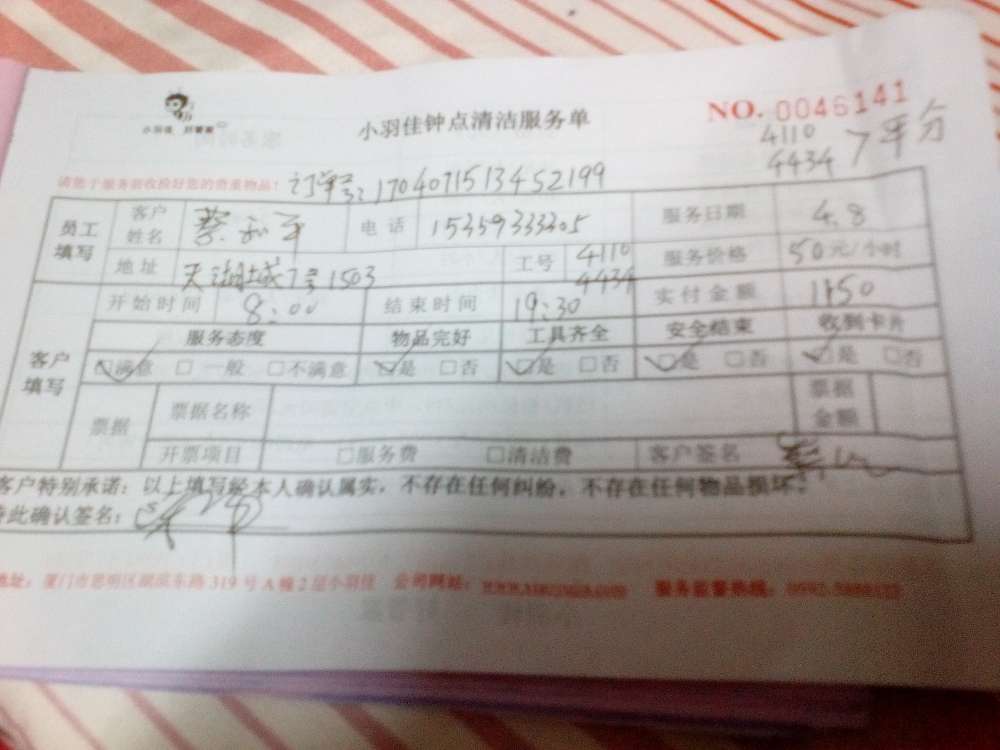 小羽佳 好管家
小羽佳钟点清洁服务单
NO. 0046141
4110
4434 7 平分
请您于服务前收拾好您的贵重物品! 订单号:170407151345 2199
员工填写 客户姓名 蔡和平 电话 15359333305 服务日期 4.8
地址 天湖城7号1503 工号 4110 4434 服务价格 50元/小时
开始时间 8:00 结束时间 19:30 实付金额 1150
客户填写 服务态度 物品完好 工具齐全 安全结束 收到卡片
□满意 □一般 □不满意 □是 □否 □是 □否 □是 □否 □是 □否
票据 票据名称 票据金额
开票项目 □服务费 □清洁费 客户签名
客户特别承诺:以上填写经本人确认属实,不存在任何纠纷,不存在任何物品损坏!
特此确认签名:
地址:厦门市思明区湖滨东路319号A幢2层小羽佳 公司网站: 服务监督热线: